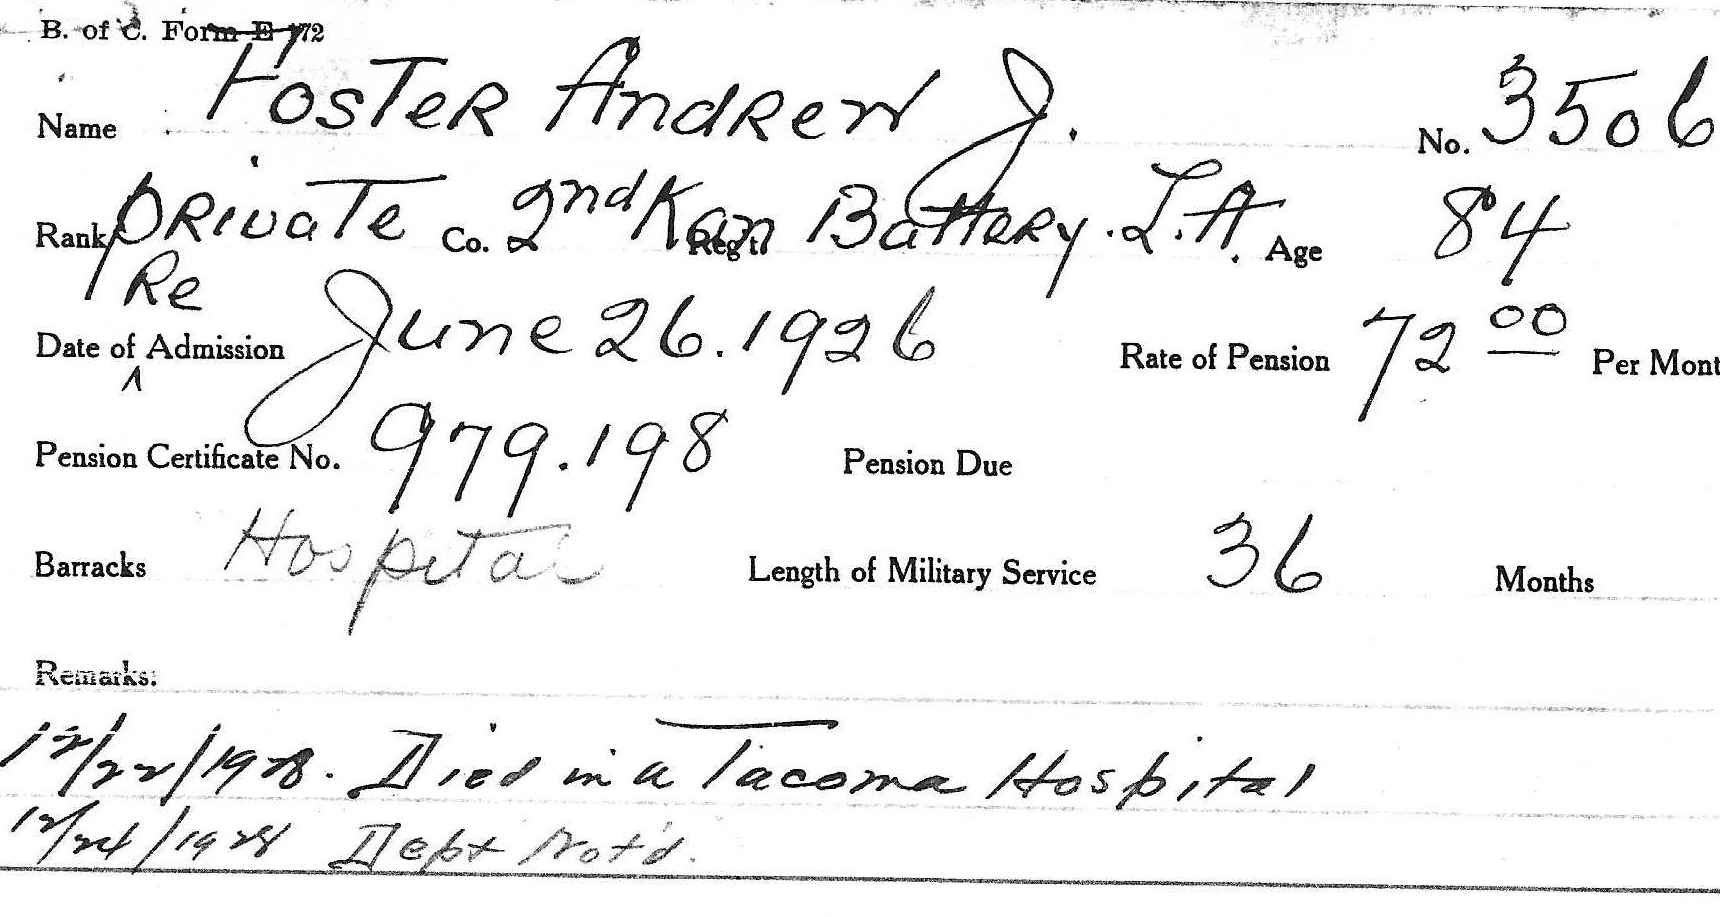 B. of C. Form E 172
Name Foster Andrew J. No. 3506
Rank private Co. 2nd Kan Reg't Battery. L.A. Age 84
Re
Date of ^ Admission June 26.1926 Rate of Pension 72 00 Per Mont
Pension Certificate No. 979.198 Pension Due
Barracks Hospital Length of Military Service 36 Months
Remarks:
12/22/1928. Died in a Tacoma Hospital
12/24/1928 Dept Not'd.